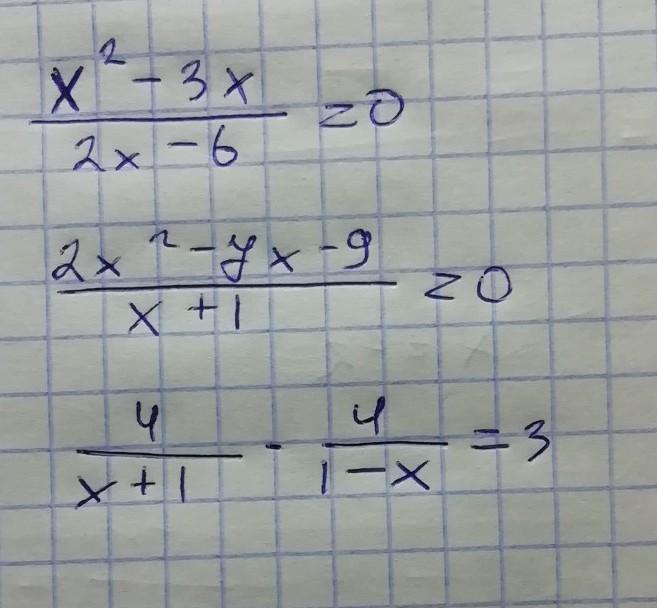 (x² - 3x)/(2x - 6) = 0
(2x² - 7x - 9)/(x + 1) = 0
4/(x + 1) - 4/(1 - x) = 3